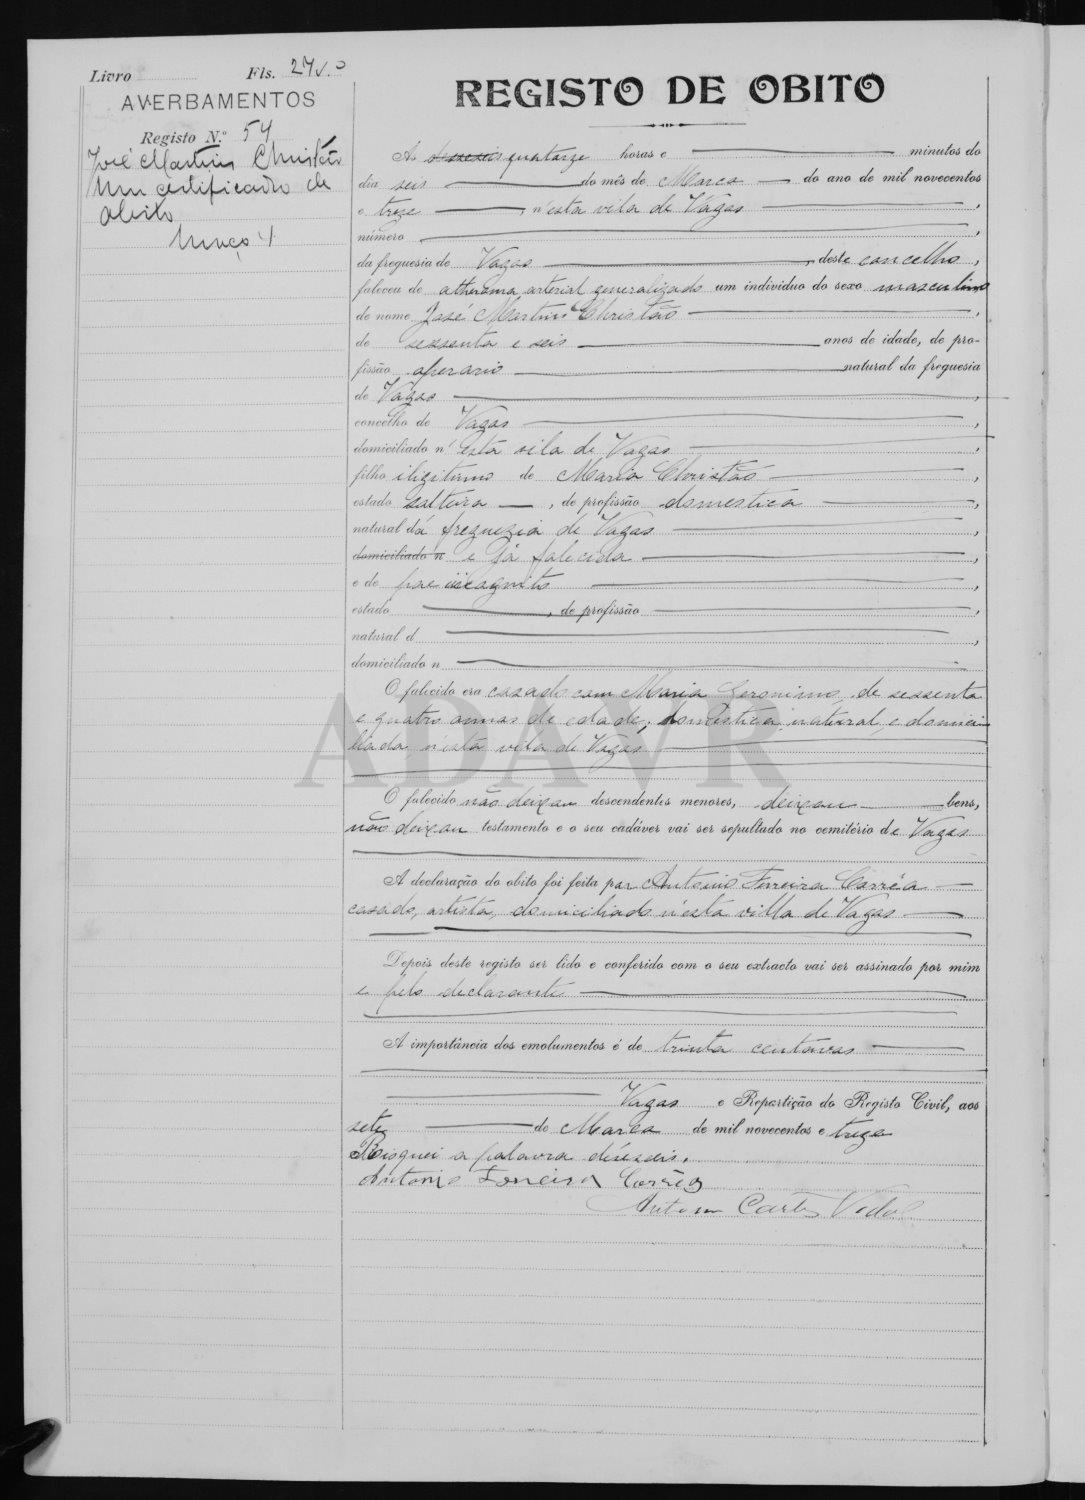 Livro Fls. 27v.º
AVERBAMENTOS
Registo N.º 54
José Martins Christão
Um certificado de
obito
REGISTO DE OBITO
Ás desaseis quatarze horas e minutos do
dia seis do mês de Março do ano de mil novecentos
e treze, n'esta vila de Vagos,
número,
da freguesia de Vagos, deste concelho,
faleceu de atheroma arterial generalizado um individuo do sexo masculino
de nome Jose Martins Christão,
de sessenta e seis anos de idade, de pro-
fissão operario natural da freguesia
de Vagos,
concelho de Vagos,
domiciliado n'esta vila de Vagos,
filho iligitimo de Maria Christão,
estado solteira, de profissão domestica,
natural dá freguezia de Vagos,
domiciliado n e já falecida,
e de pae incognito,
estado, de profissão,
natural d,
domiciliado n
O falecido era casado com Maria Geronimo, de sessenta
e quatro annos de edade, domestica, natural e domici-
liada n'esta vila de Vagos
O falecido não deixou descendentes menores, deixou bens,
não deixou testamento e o seu cadáver vai ser sepultado no cemitério de Vagos
A declaração do obito foi feita por Antonio Ferreira Corrêa
casado, artista, domiciliado n'esta villa de Vagos
Depois deste registo ser lido e conferido com o seu extracto vai ser assinado por mim
e pelo declarante
A importância dos emolumentos é de trinta centavos
Vagos e Repartição do Registo Civil, aos
sete de Março de mil novecentos e treze
Risquei a palavra déseseis.
Antonio Ferreira Corrêa
Antonio Carlos Vidal
ADAVR